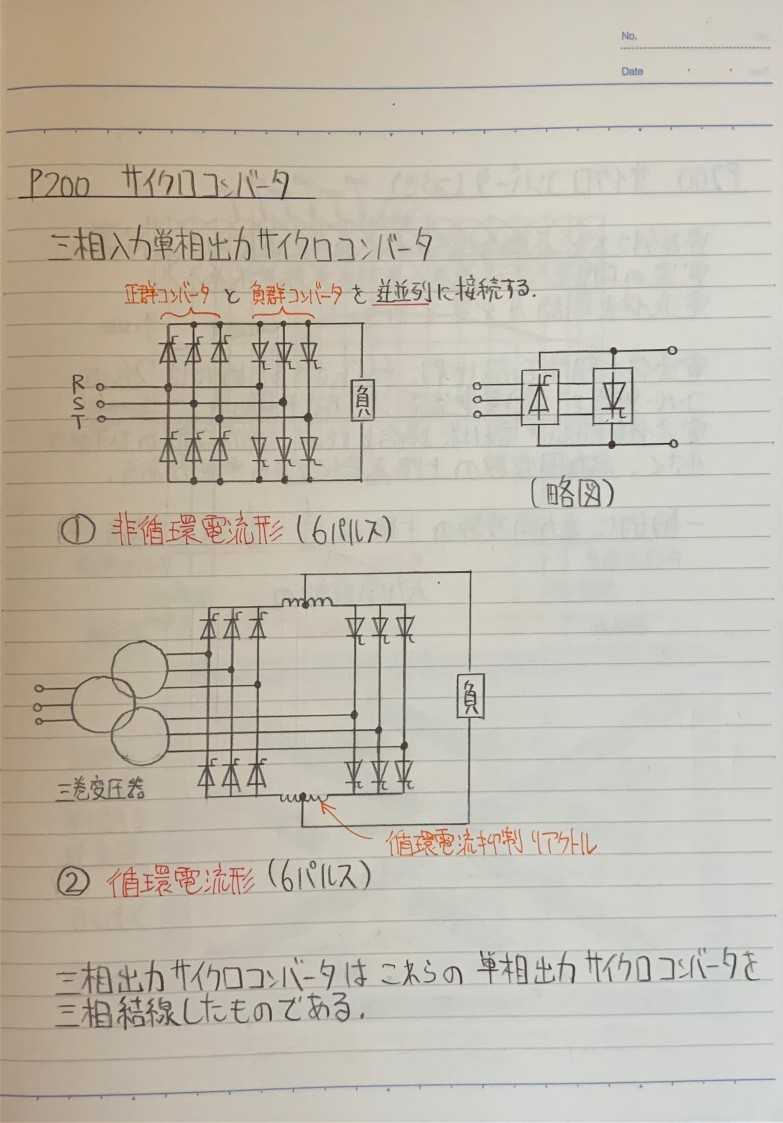 No.
Date
P200 サイクロコンバータ
三相入力単相出力サイクロコンバータ
正群コンバータ と 負群コンバータ を 逆並列に接続する.
R
S
T
負
(略図)
① 非循環電流形 (6パルス)
負
三巻変圧器
循環電流抑制リアクトル
② 循環電流形 (6パルス)
三相出力サイクロコンバータは これらの 単相出力サイクロコンバータを
三相結線したものである.